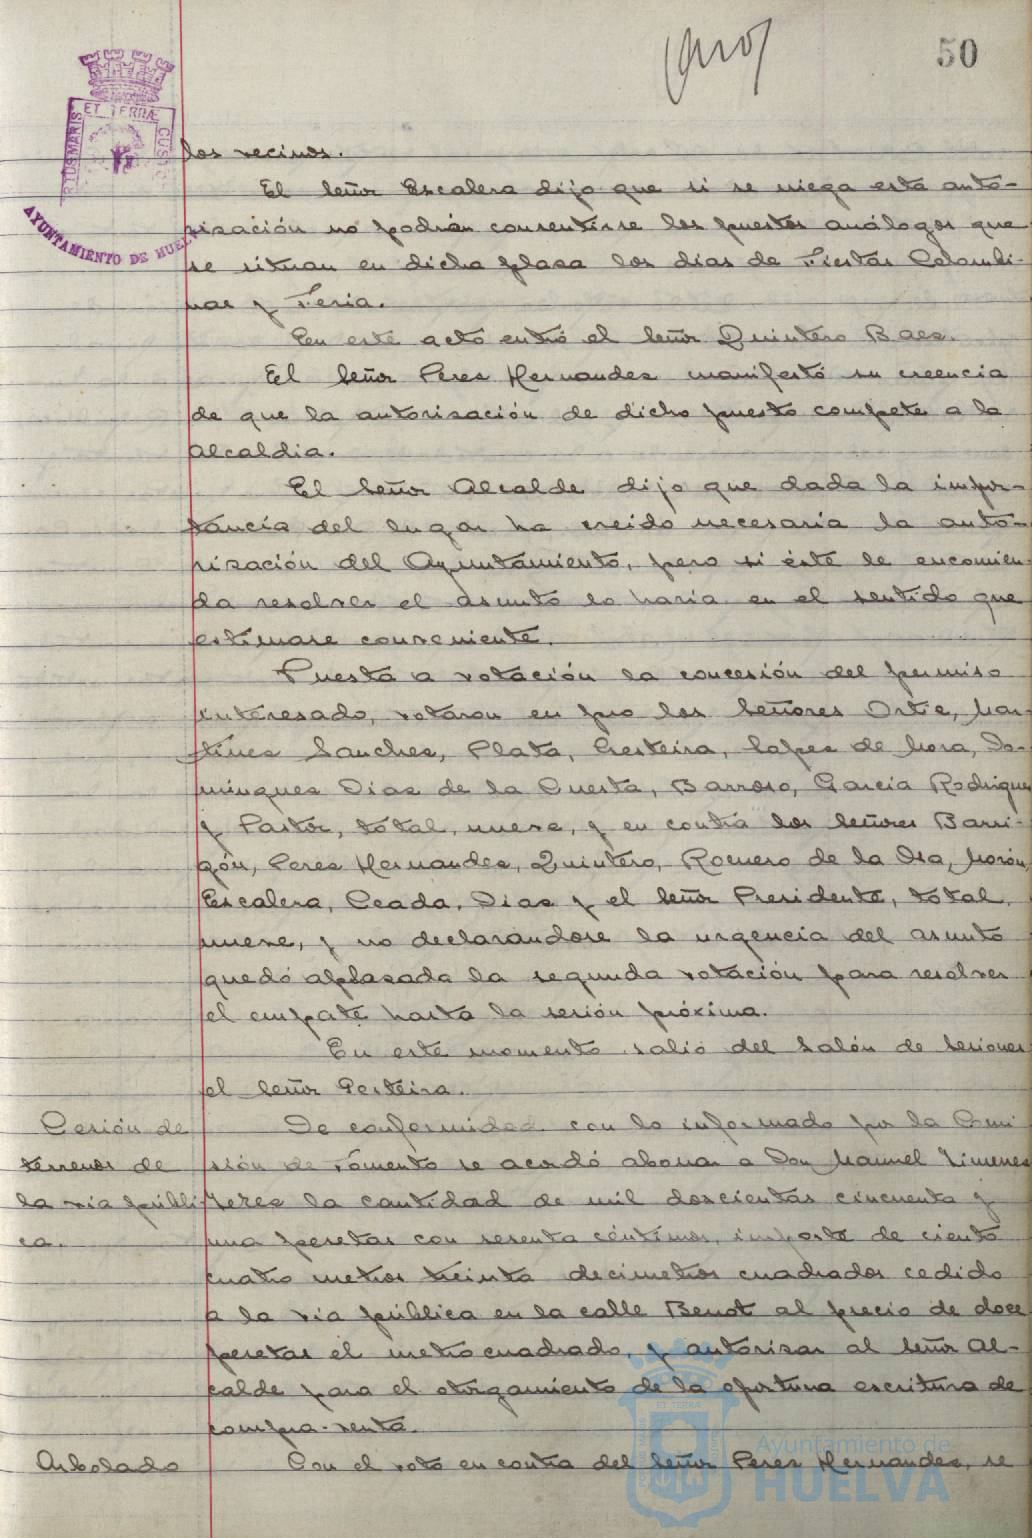 50
ET TERRÆ
AYUNTAMIENTO DE HUELVA
los vecinos.
El señor Escalera dijo que si se niega esta auto-
rización no podrán consentirse los puestos análogos que
se situan en dicha plaza los dias de Fiestas Colombi-
nas y Feria.
En este acto entró el señor Quintero Baez.
El señor Perez Hernandez manifestó su creencia
de que la autorización de dicho puesto compete a la
Alcaldia.
El señor Alcalde dijo que dada la impor-
tancia del lugar ha creido necesaria la auto-
rización del Ayuntamiento, pero si éste le encomien
da resolver el asunto lo haria en el sentido que
estimase conveniente.
Puesta a votación la concesión del permiso
interesado, votaron en pro los señores Ortiz, Mar-
tinez Sanchez, Plata, Gesteira, Lopez de Mora, Do-
minguez Diaz de la Cuesta, Barroso, Garcia Rodriguez
y Pastor, total, nueve, y en contra los señores Barri-
gón, Perez Hernandez, Quintero, Romero de la Osa, Morón,
Escalera, Ceada, Diaz y el señor Presidente, total,
nueve, y no declarándose la urgencia del asunto
quedó aplazada la segunda votación para resolver
el empate hasta la sesión próxima.
En este momento salió del Salón de Sesiones
el señor Gesteira.
Cesión de
terrenos de
la via públi
ca.
De conformidad con lo informado por la Comi
sión de Fomento se acordó abonar a Don Manuel Jimenez
Perez la cantidad de mil doscientas cincuenta y
una pesetas con sesenta céntimos, importe de ciento
cuatro metros treinta decimetros cuadrados cedido
a la via pública en la calle Benot al precio de doce
pesetas el metro cuadrado, y autorizar al señor Al-
calde para el otorgamiento de la oportuna escritura de
compra-venta.
Arbolado
Con el voto en contra del señor Perez Hernandez, se
Ayuntamiento de
HUELVA